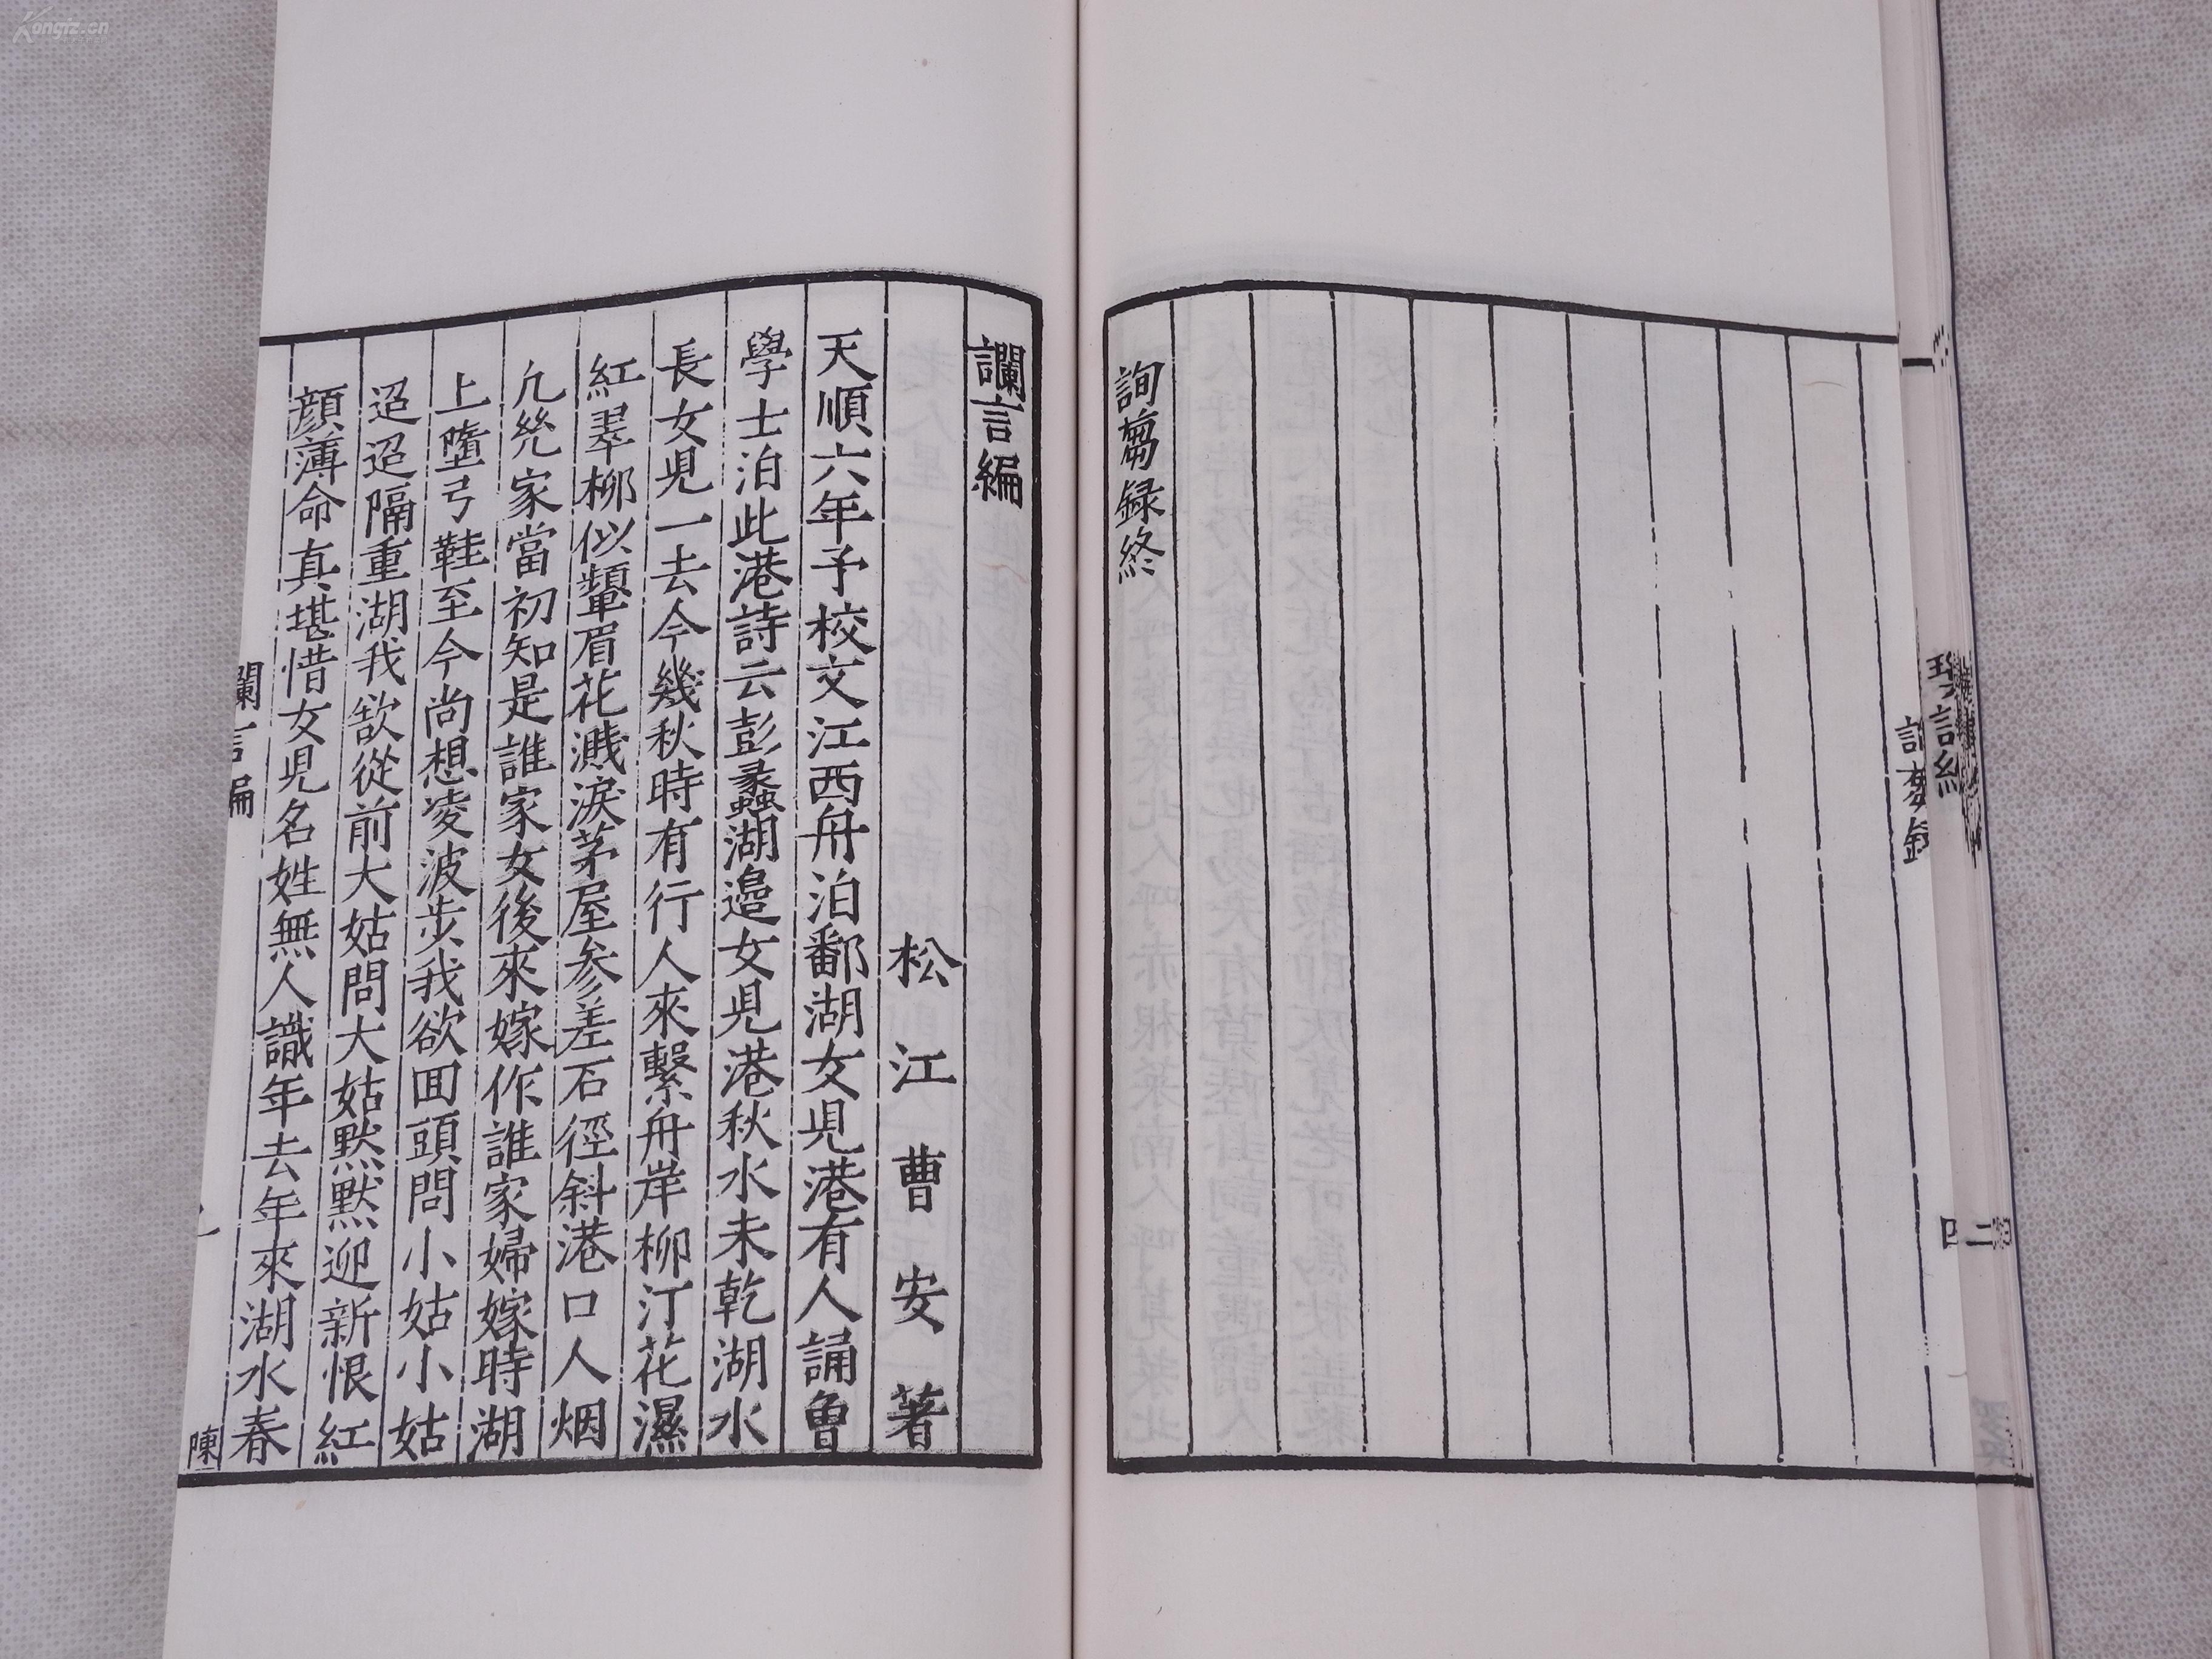 詢蒭録終
讕言編
松江曹安著
天順六年予校文江西舟泊鄱湖女児港有人誦魯
學士泊此港詩云彭蠡湖邉女児港秋水未乾湖水
長女児一去今幾秋時有行人來繫舟岸柳汀花濕
紅翠柳似顰眉花濺淚茅屋参差石徑斜港口人烟
凢㡬家當初知是誰家女後來嫁作誰家婦嫁時湖
上墮弓鞋至今尚想凌波步我欲囬頭問小姑小姑
迢迢隔重湖我欲從前大姑問大姑默默迎新恨紅
顔薄命真堪惜女児名姓無人識年去年來湖水春
讕言編
陳
Kongfz.cn